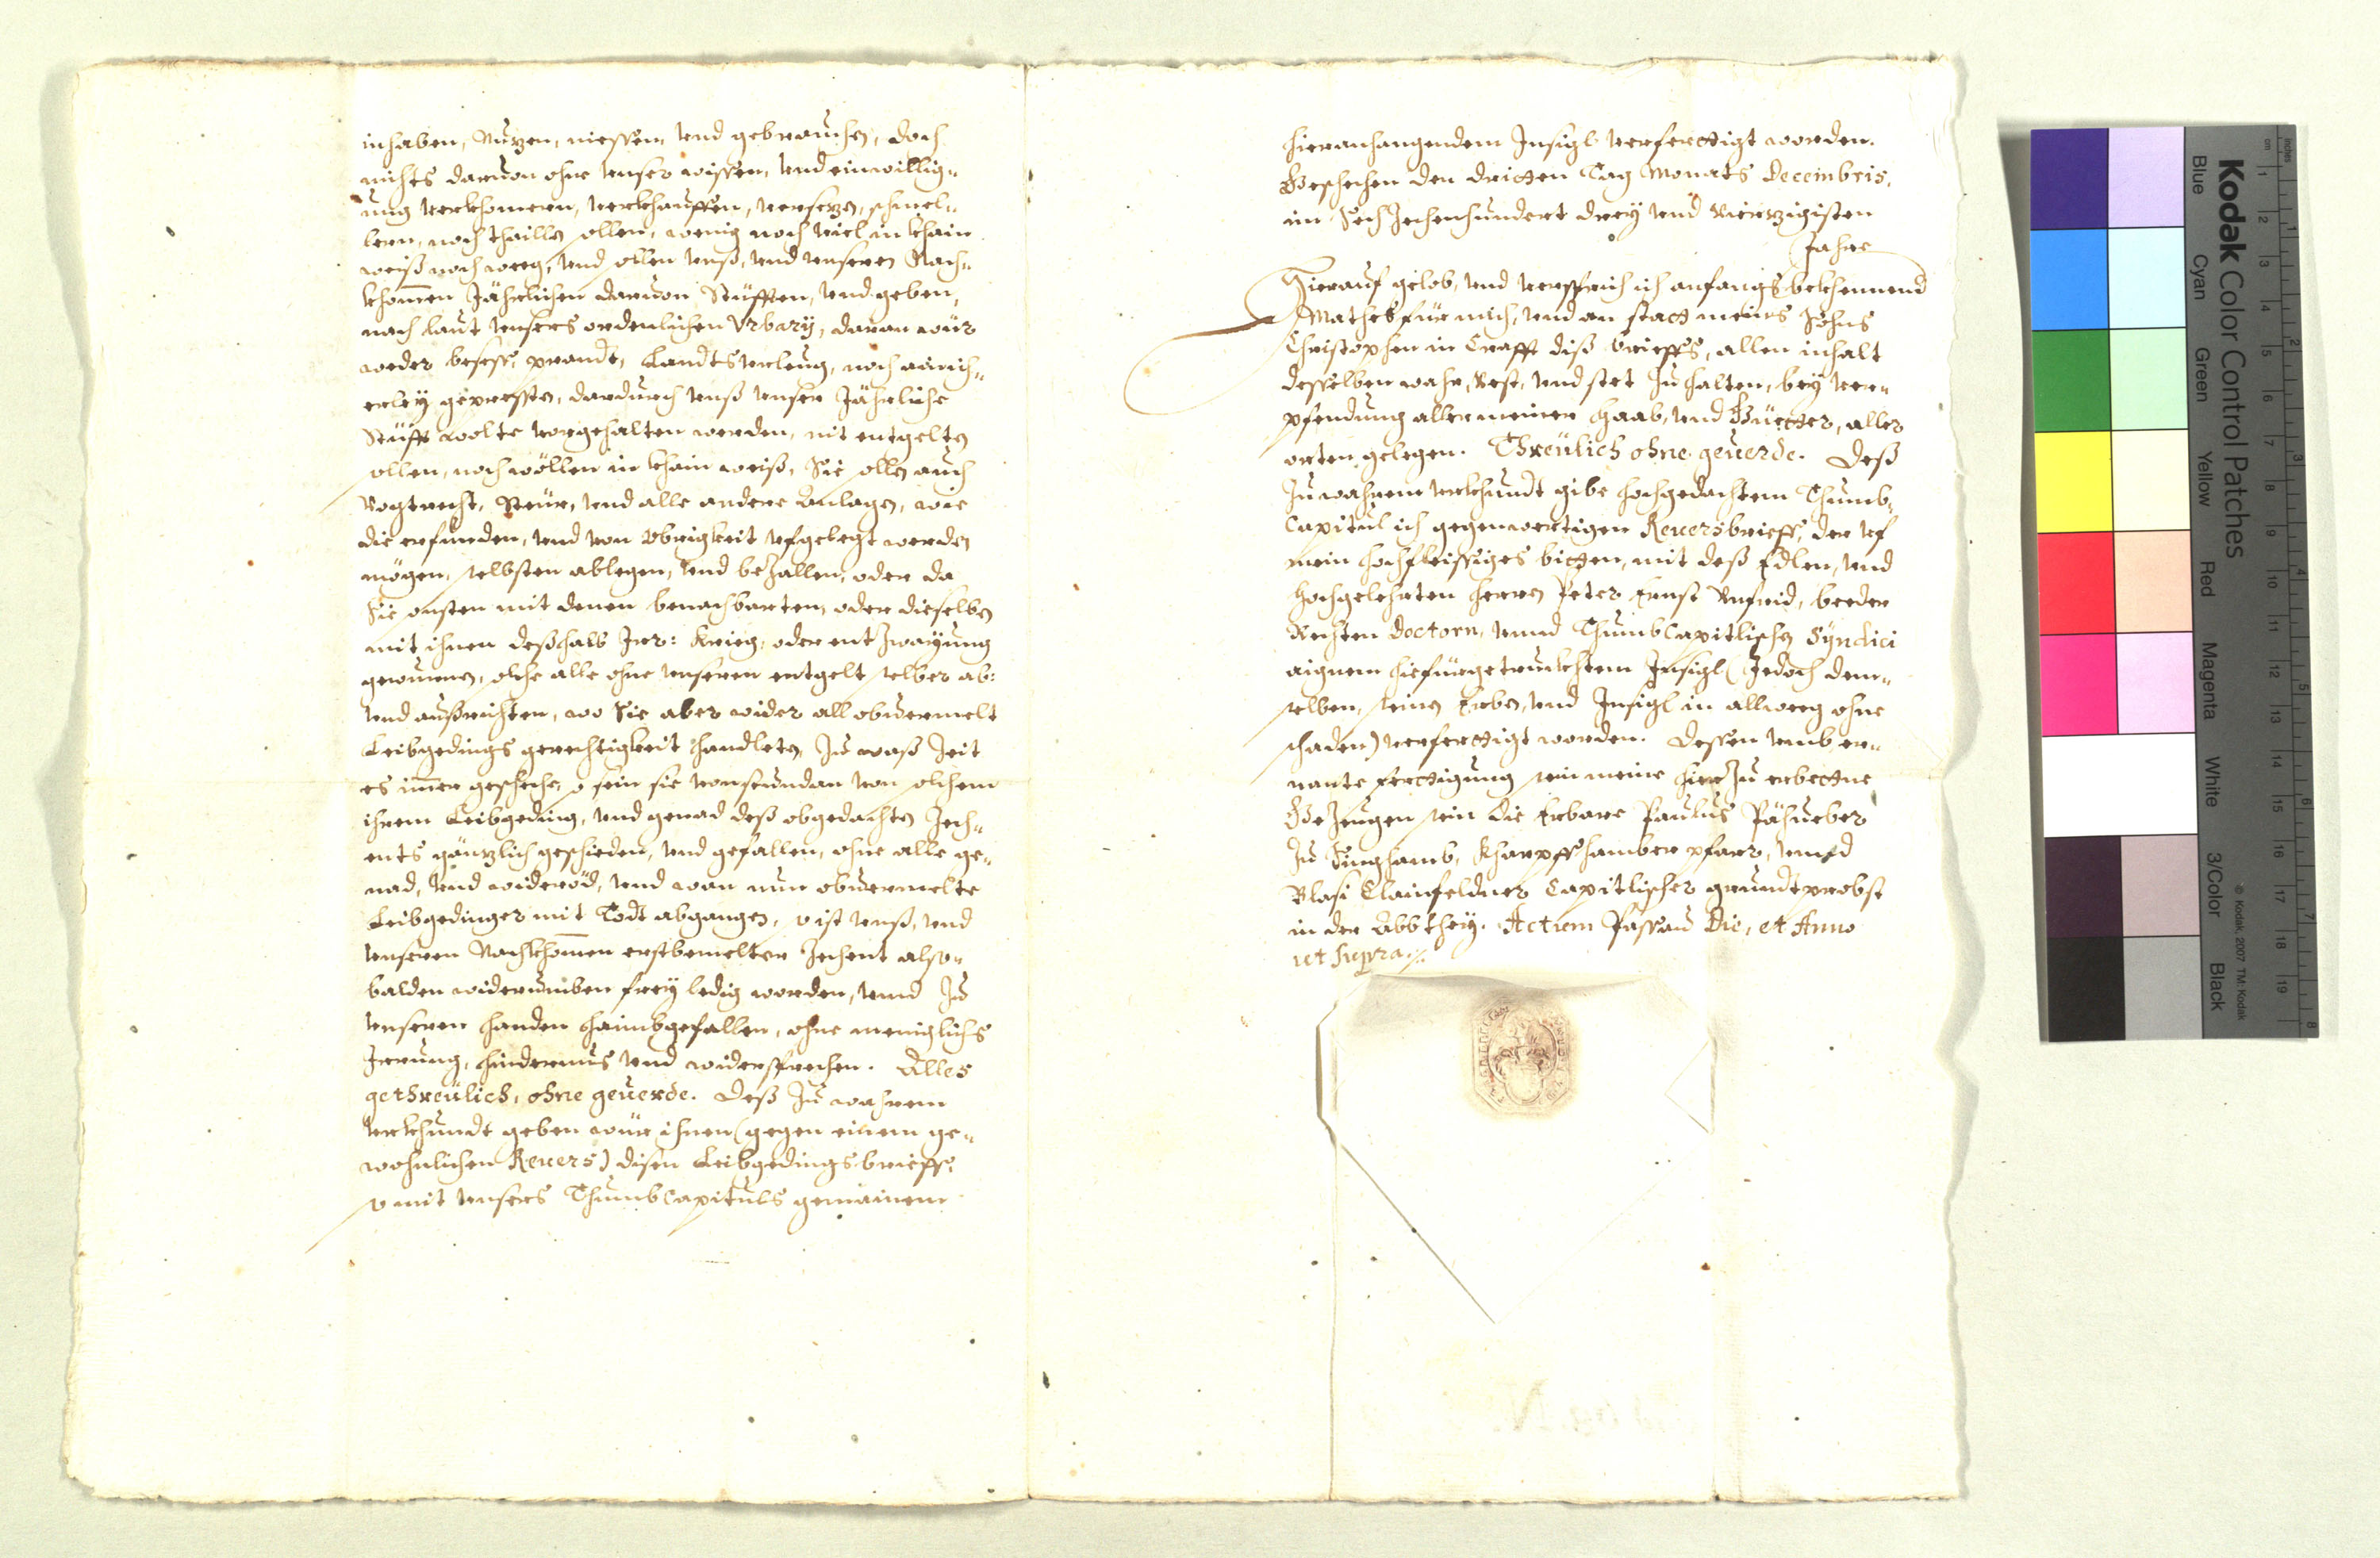 inhaben, Nuzen, niessen, vnd gebrauchen, doch
nichts daruon ohne vnser wissen, vnd einwillig-
ung verkhomern, verkhauffen, versezen, schmel-
lern, noch thaillen sollen, wenig noch viel in khain
weiß noch weeg, vnd sollen vnß, vnd vnseren Nach-
khomen Jährlichen daruon Stüfften, vnd geben,
nach laut vnsers ordenlichen Vrbary, daran wür
weder besess, prandt, Landtsverleug, noch ainich-
erley gepressten, dardurch vnß vnser Jährliche
Stüfft wolte vorgehalten werden, nit entgelten
sollen, noch wöllen in khain weiß, Sie sollen auch
Vogtrecht, Steur, vnd alle andere Anlagen, wie
die erfunden, vnd von Obrigkeit vfgelegt werden
mögen, selbsten ablegen, vnd bezallen, oder da
Sie sonsten mit denen benachbarten, oder dieselben
mit ihnen deßhalb Irr: Krieg, oder entzwayung
gewunnen, solche alle ohne vnseren entgelt selber ab:
vnd außrichten, wo Sie aber wider all obuermelt
Leibgedings gerechtigkeit handleten, zu waß Zeit
es imer geschehe, so sein sie von stundan von solchem
ihrem Leibgeding, vnd genad deß obgedachten Zech-
ents gänzlich geschieden, vnd gefallen, ohne alle ge-
nad, vnd wideröd, vnd wan nun obuermelte
Leibgedinger mit Todt abgangen, so ist vnß, vnd
vnseren Nachkhomen erstbemelter Zechent also-
balden widerumben frey ledig worden, vnnd zu
vnseren handen haimbgefallen, ohne meniglichs
Irrung, hindernus vnd widersprechen. Alles
gethreülich, ohne geuerde. Deß zu wahrem
vrkhundt geben wür ihnen (gegen einem ge-
wohnlichen Reuers) disen Leibgedings brieff,
so mit vnsers Thumb Capituls gemainem
hieranhangendem Insigl verferttigt worden.
Geschechen den dritten Tag Monats Decembris,
im Sechzechenhundert drey vnd Vierzigisten
Jahre
Hierauf gelob, vnd versprich ich anfangs bekhennend
Mathes für mich, vnd an statt meines Sohns
Christophen in Crafft diß brieffs, allen inhalt
desselben wahr, Vest, vnd stet zu halten, bey ver-
pfendung aller meiner Haab, vnd Güetter, aller
orten gelegen. Threülich ohne geuerde. Deß
zu wahrem vrkhundt gibe hochgedachtem Thumb-
Capitul ich gegenwertigen Reuersbrieff, der vf
mein hochfleissiges bitten, mit deß Edlen, vnd
hochgelehrten Herrn Peter Ernst beeder
Rechten Doctorn, vnnd Thumb Capitlischen Syndici
aignem hiefürgetrukhtem Insigl (Jedoch dem-
selben, seinen Erben, vnd Insigl in allweeg ohne
schaden) verferttigt worden. Dessen vmb er-
nante ferttigung sein meine hierzu erbettne
Gezeugen sein die Erbare Paulus
zu Singhamb, Kharpfhamber pfarr, vnnd
Blasi Clainfeldner Capitlischer grundtprobst
in der Abbthey. Actum Passau Die, et Anno
ut supra./.
Kodak Color Control Patches
Blue Cyan Green Yellow Red Magenta White 3/Color Black
© Kodak, 2007 TM: Kodak
inches 1 2 3 4 5 6 7 8
cm 1 2 3 4 5 6 7 8 9 10 11 12 13 14 15 16 17 18 19